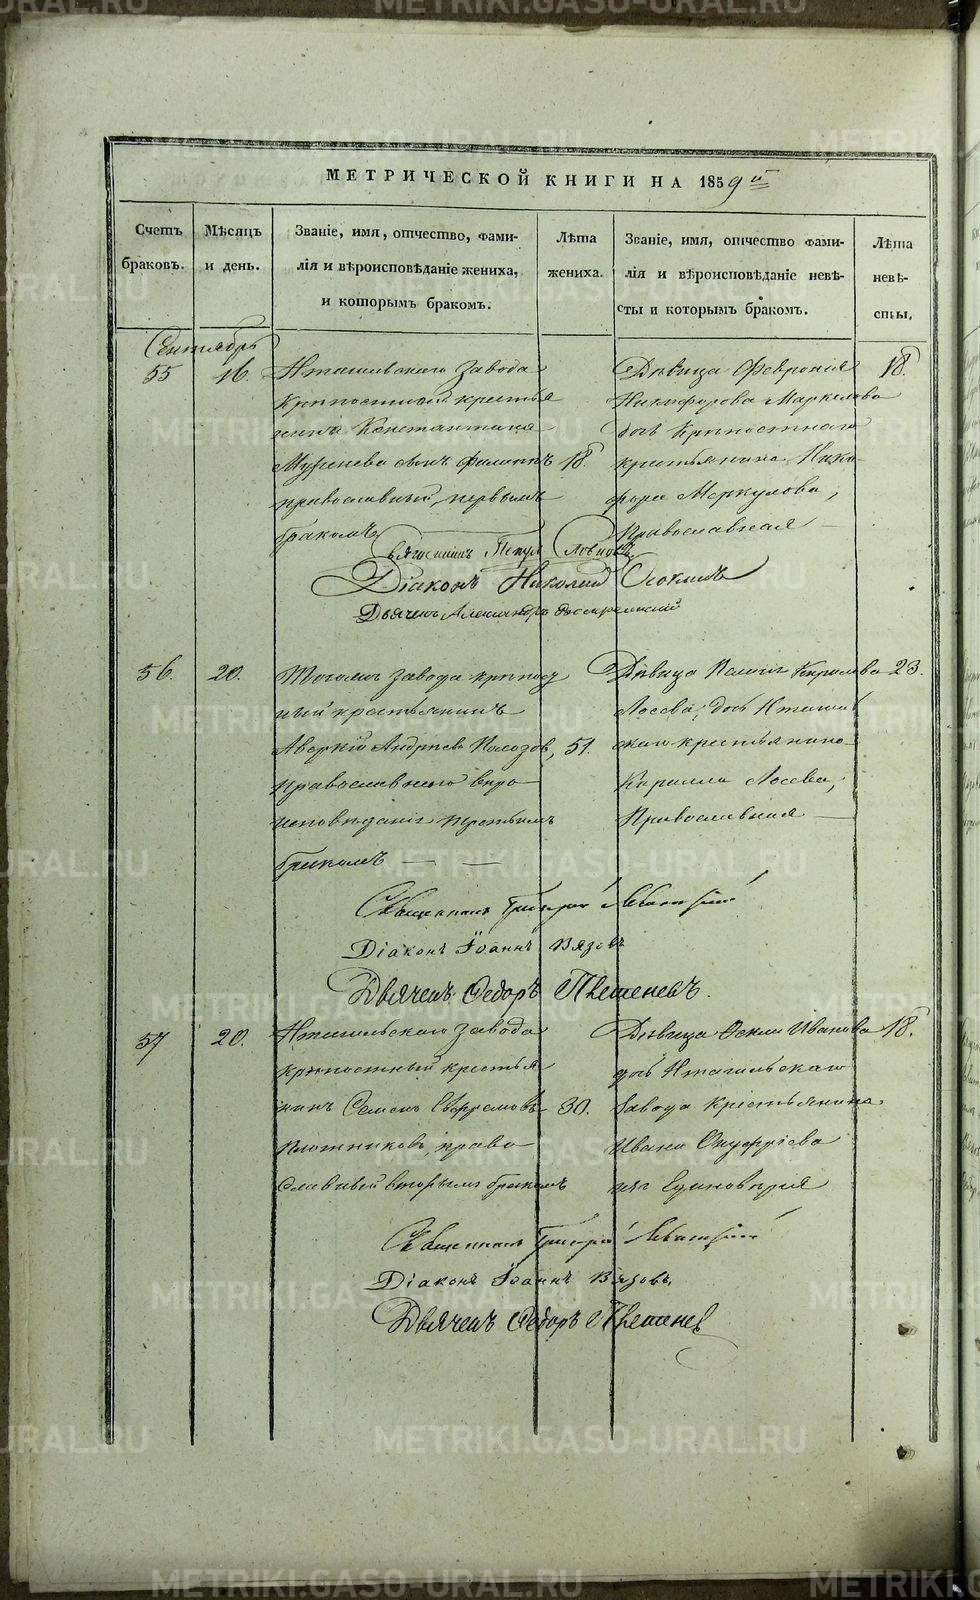 МЕТРИЧЕСКОЙ КНИГИ НА 1859й
Счетъ браковъ.
Мѣсяцъ и день.
Званіе, имя, отчество, фами-
лія и вѣроисповѣданіе жениха,
и которымъ бракомъ.
Лѣта
жениха.
Званіе, имя, отчество фами-
лія и вѣроисповѣданіе невѣ-
сты и которымъ бракомъ.
Лѣта
невѣ-
сты.
Сентябрь
55
16.
Нтагильскаго завода
крѣпостнаго крестья
нина Константина
сынъ Филиппъ
православный, первымъ
бракомъ
18.
Дѣвица Феврония
Никифорова
дочь крѣпостнаго
крестьянина Ники-
фора Меркулова,
Православная
18.
Петръ
Діаконъ Николай
Дьячекъ Александръ
56.
20.
завода крѣпост
ный крестьянинъ
Аверкій Андреевъ Полозов,
православнаго вѣро
исповѣданія третьимъ
бракомъ
51.
Дѣвица Кирилова
Лосева, дочь Нтагиль
скаго крестьянина
Кирилла Лосева,
Православная
23.
Священникъ Григорій
Діаконъ Іоаннъ Вязовъ
Дьячекъ Федоръ
57
20.
Нтагильскаго завода
крѣпостный крестья
нинъ Семенъ Ефремовъ
Плотниковъ, право
славный вторымъ бракомъ
30.
Дѣвица Иванова
дочь Нтагильскаго
завода крестьянина
Ивана Онуфріева
из Единовѣрія
18.
Священникъ Григорій
Діаконъ Іоаннъ Вязовъ
Дьячекъ Федоръ
METRIKI.GASO-URAL.RU